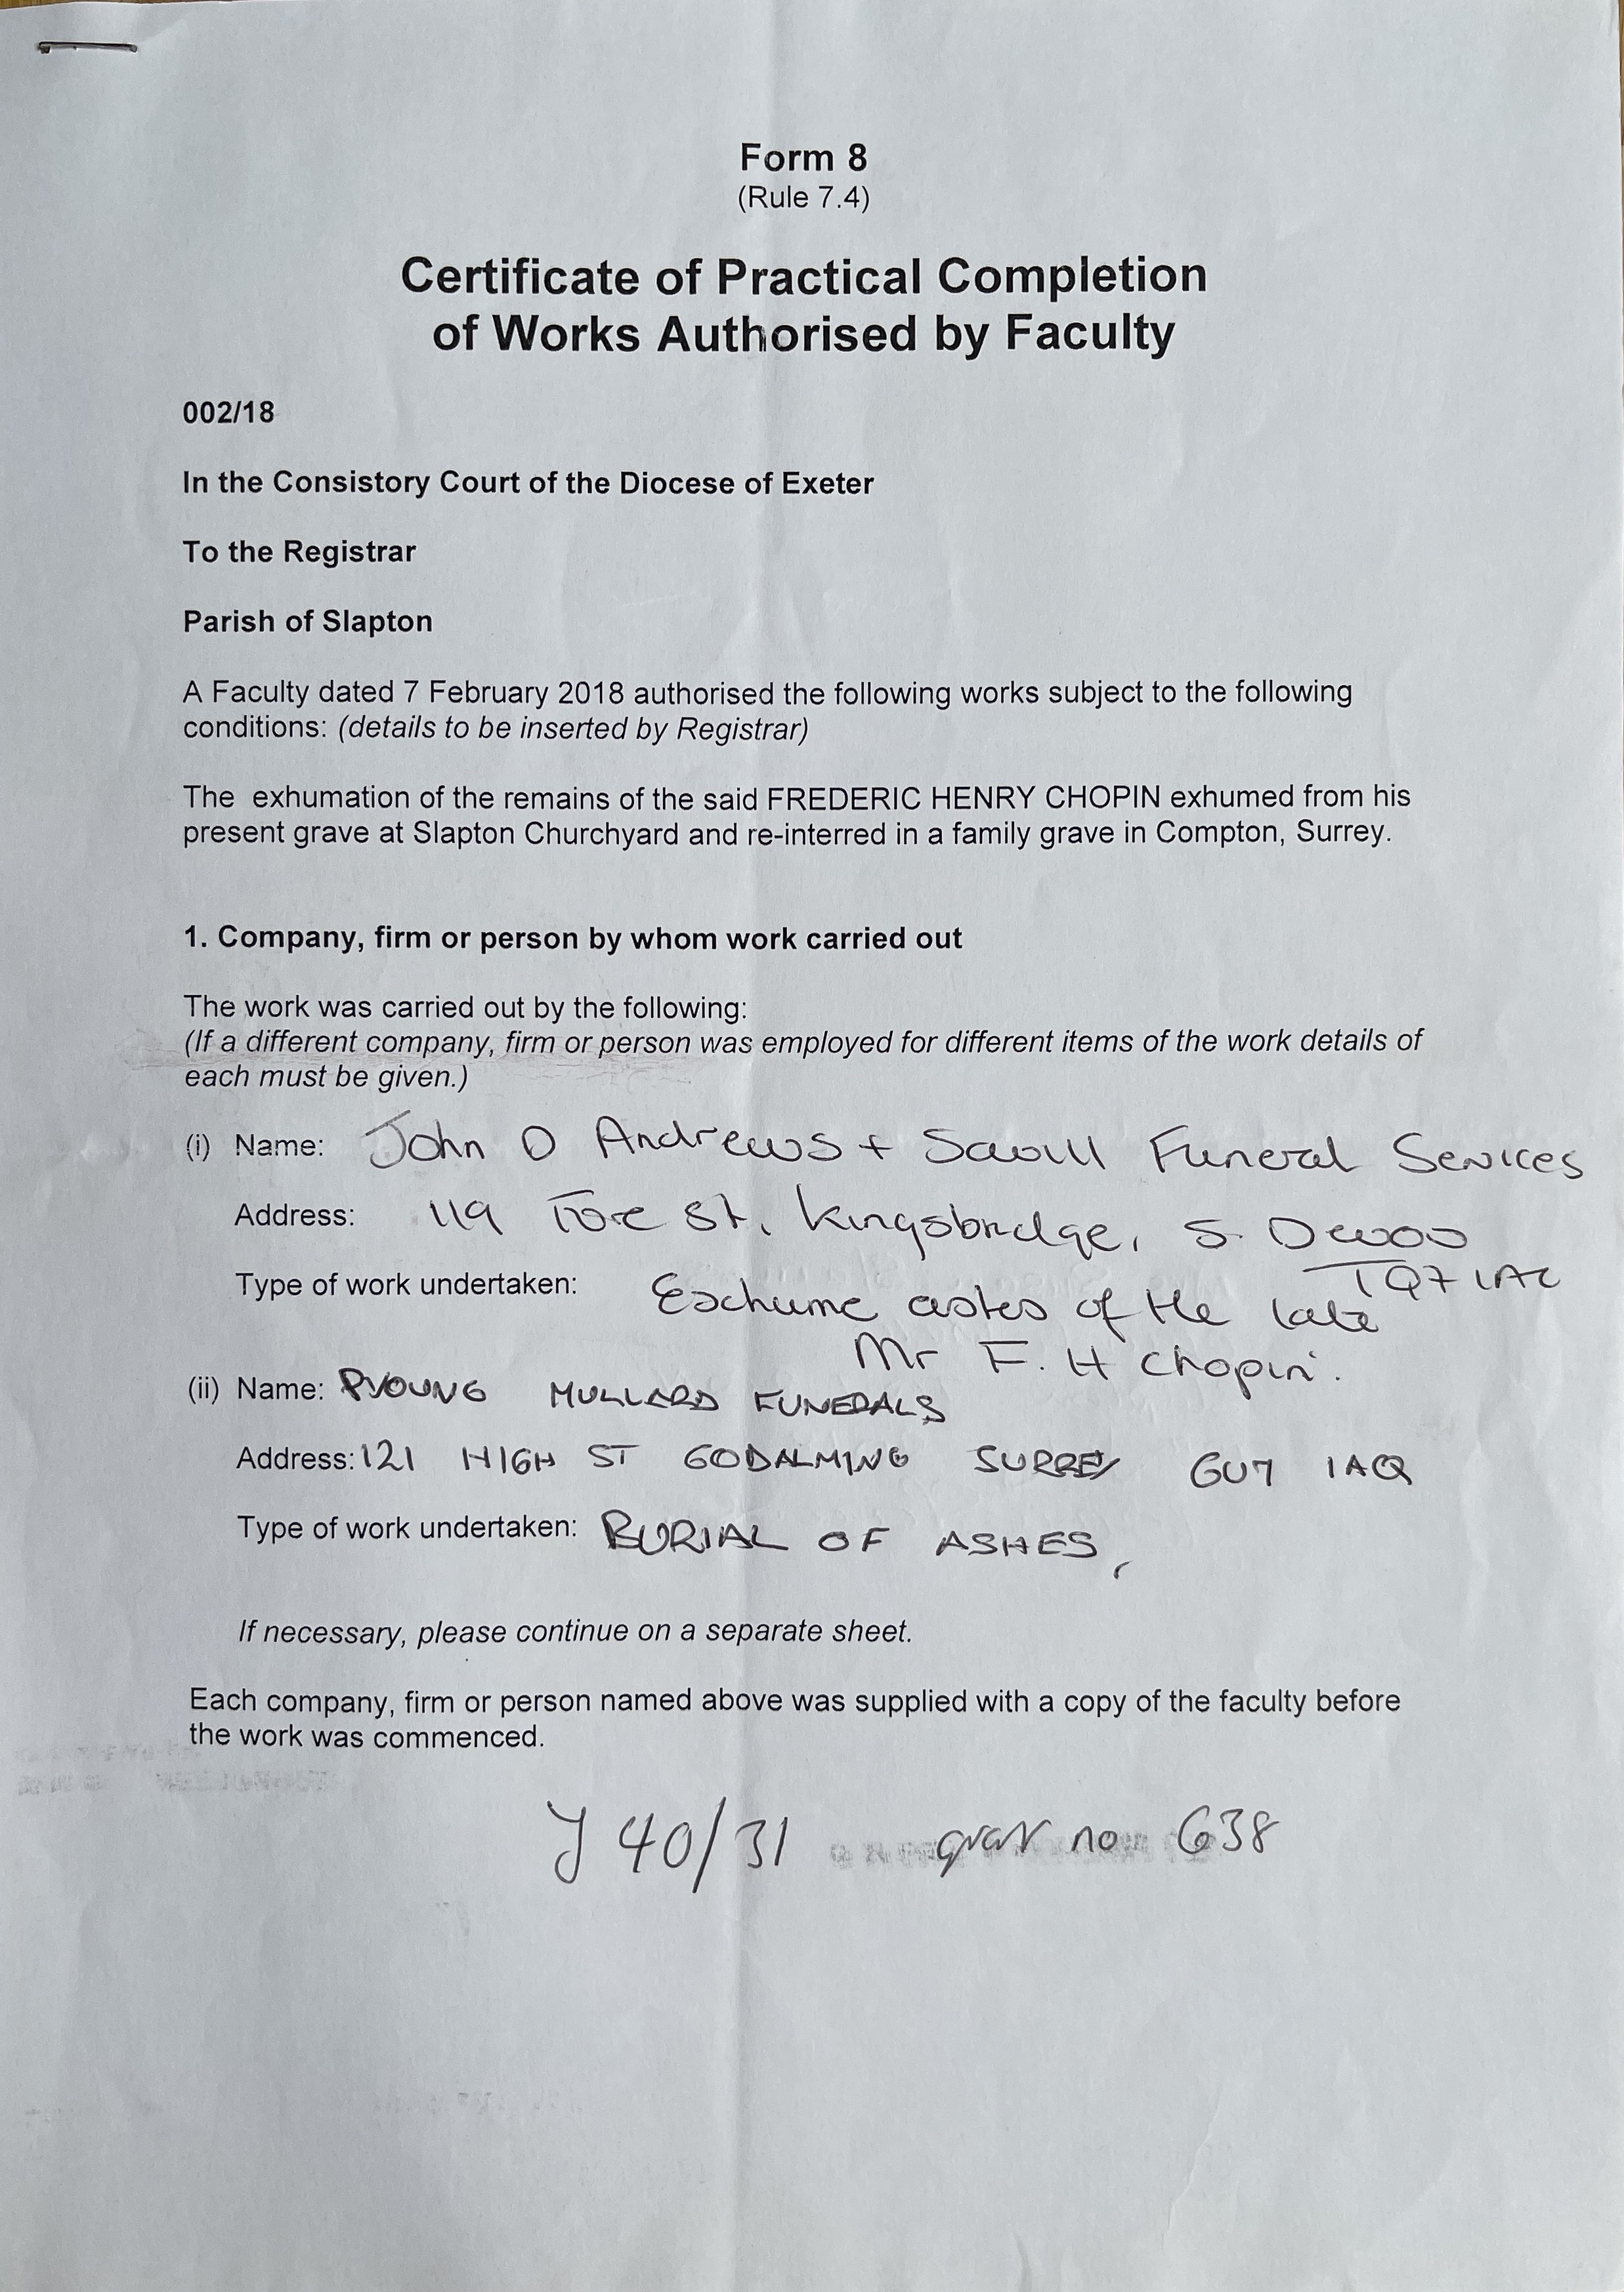 Form 8
(Rule 7.4)
Certificate of Practical Completion
of Works Authorised by Faculty
002/18
In the Consistory Court of the Diocese of Exeter
To the Registrar
Parish of Slapton
A Faculty dated 7 February 2018 authorised the following works subject to the following
conditions: (details to be inserted by Registrar)
The exhumation of the remains of the said FREDERIC HENRY CHOPIN exhumed from his
present grave at Slapton Churchyard and re-interred in a family grave in Compton, Surrey.
1. Company, firm or person by whom work carried out
The work was carried out by the following:
(If a different company, firm or person was employed for different items of the work details of
each must be given.)
(i) Name: John D Andrews + Savill Funeral Services
Address: 119 Fore St, Kingsbridge, S. Devon
TQ7 1AL
Type of work undertaken: Exhume ashes of the late
Mr F. H Chopin.
(ii) Name: PYOUNG MULLARD FUNERALS
Address: 121 HIGH ST GODALMING SURREY GU7 1AQ
Type of work undertaken: BURIAL OF ASHES,
If necessary, please continue on a separate sheet.
Each company, firm or person named above was supplied with a copy of the faculty before
the work was commenced.
J 40/31 grav no 638